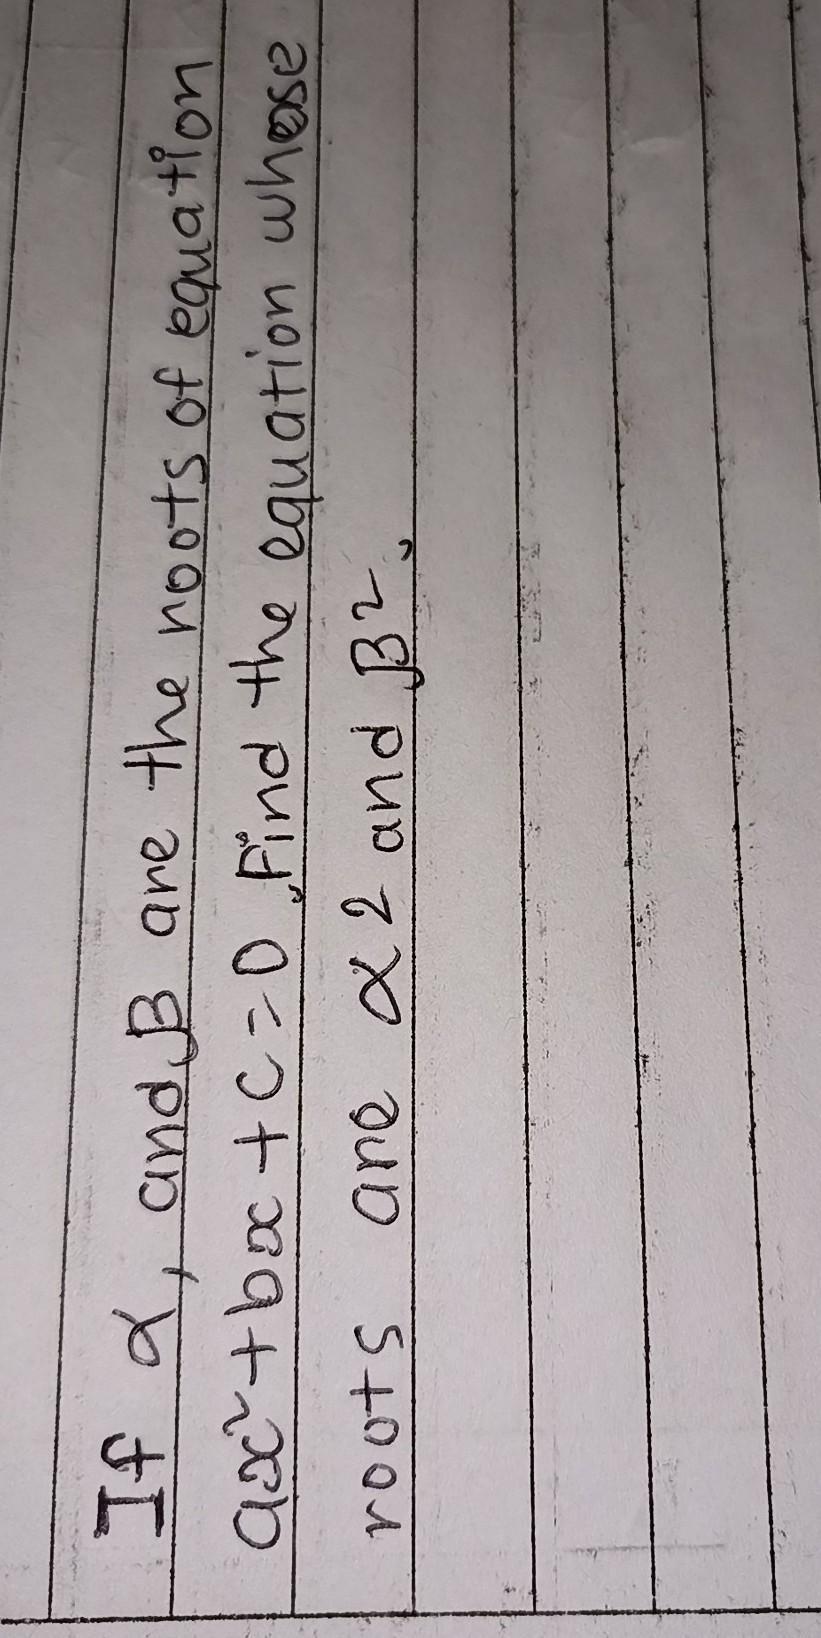 If α, and β are the roots of equation
ax²+bx+c=0, Find the equation whose
roots are α2 and β².